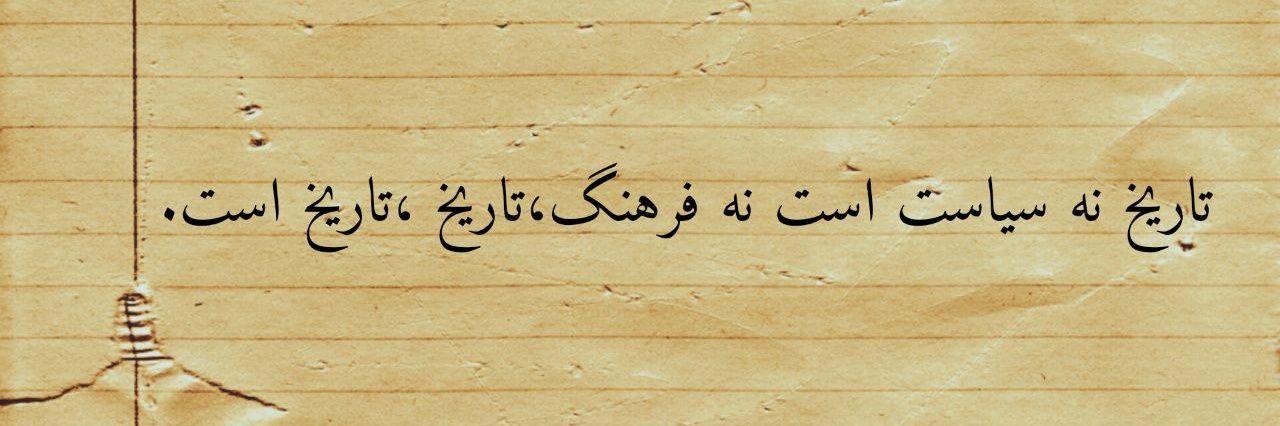 تاریخ نه سیاست است نه فرهنگ،تاریخ ،تاریخ است.